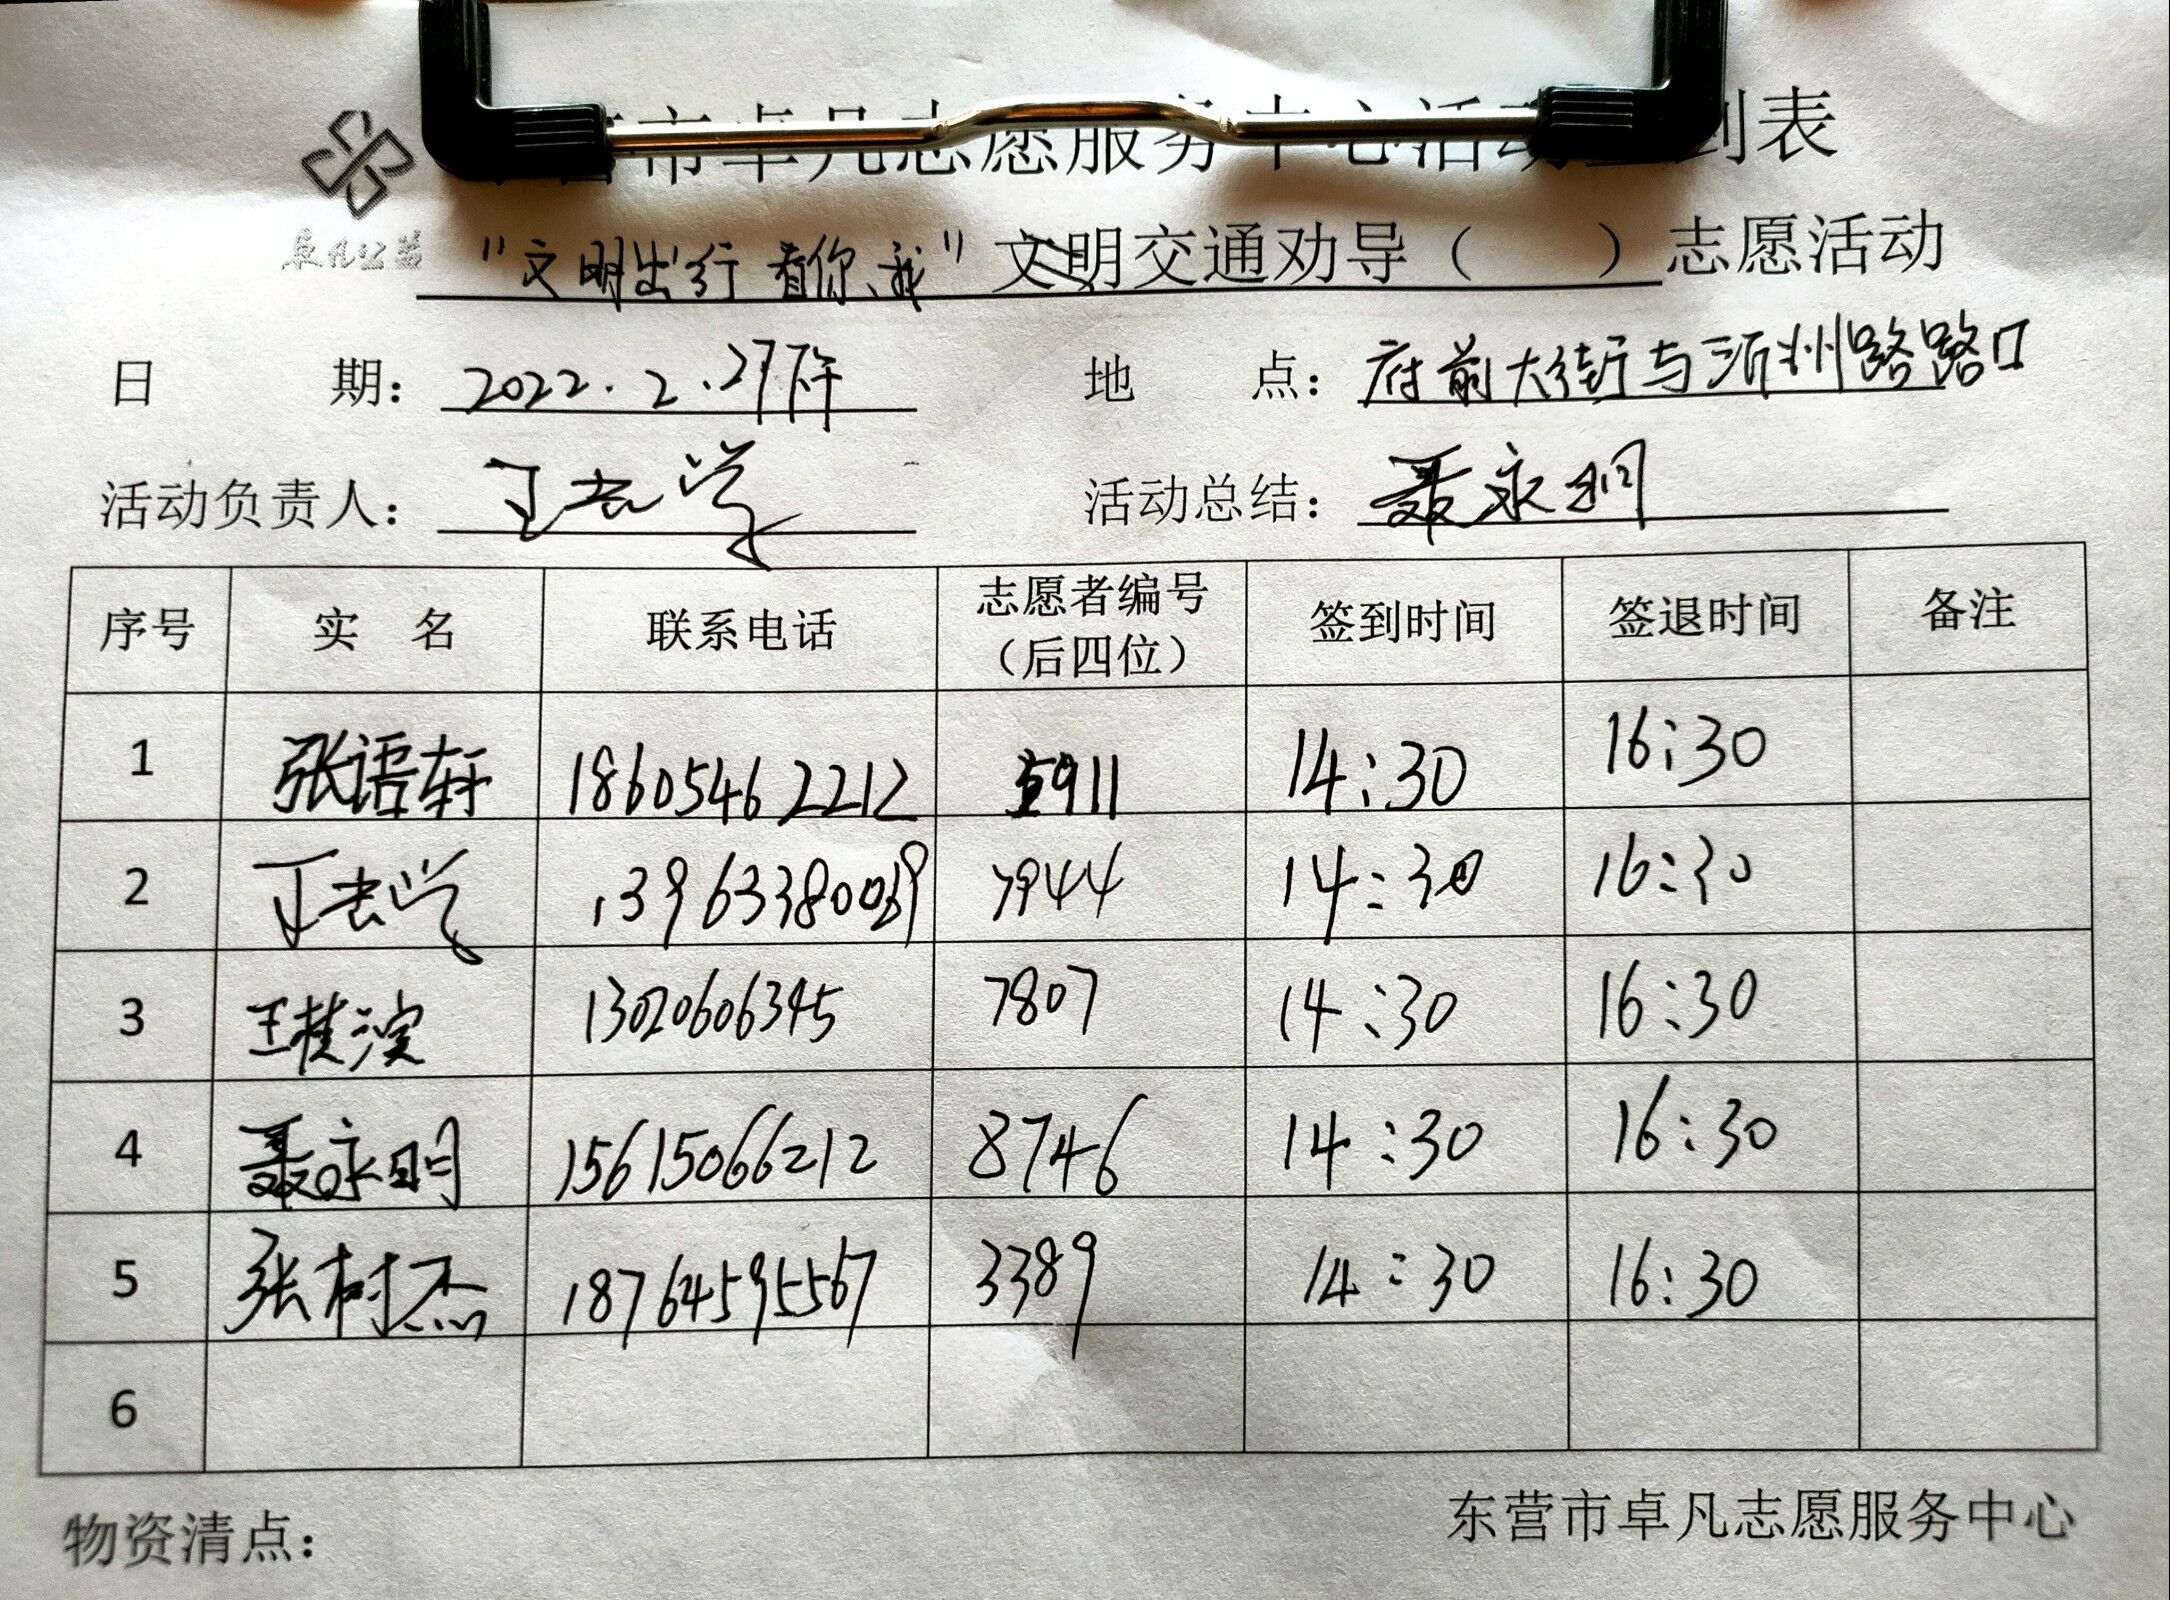 东营市卓凡志愿服务中心活动签到表
卓凡公益
“文明出行 看你、我”文明交通劝导（ ）志愿活动
日 期：2022.2.27下午 地 点：府前大街与沂州路路口
活动负责人：丁志学 活动总结：聂永明
序号 实 名 联系电话 志愿者编号（后四位） 签到时间 签退时间 备注
1 张语轩 18605462212 5911 14:30 16:30
2 丁志学 13963380039 7944 14:30 16:30
3 王桂滨 13020606345 7807 14:30 16:30
4 聂永明 15615066212 8746 14:30 16:30
5 张树杰 18764595567 3389 14:30 16:30
6
物资清点： 东营市卓凡志愿服务中心